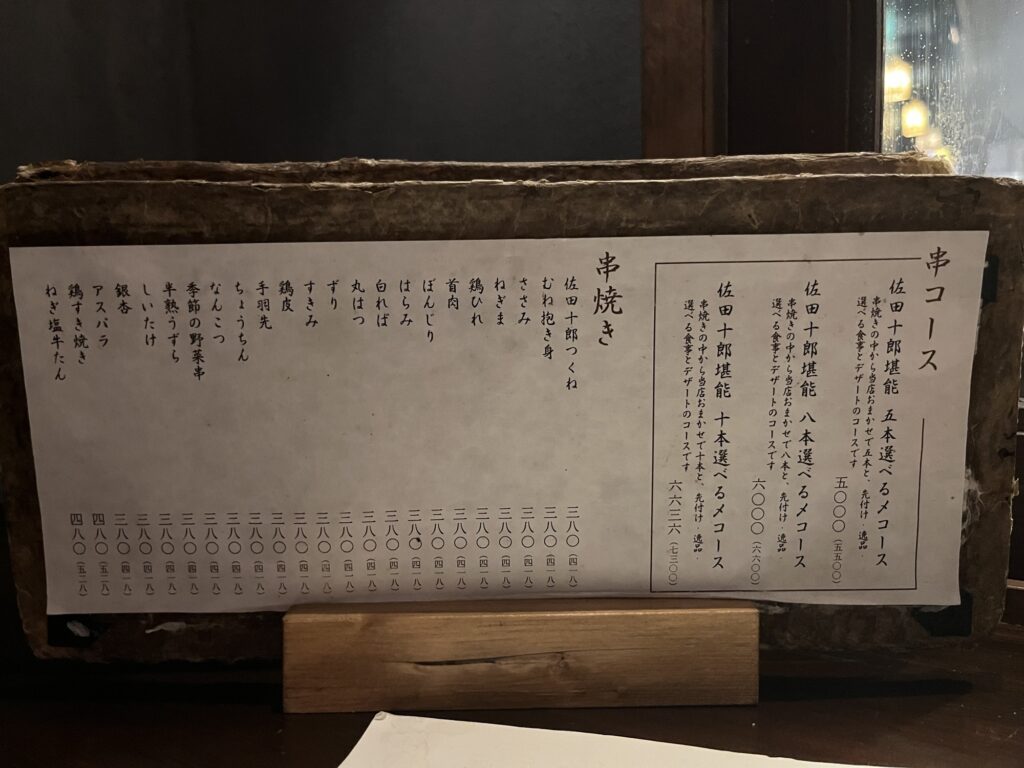 串コース
佐田十郎堪能 五本選べる〆コース
串焼きの中から当店おまかせで五本と、先付け・逸品・
選べる食事とデザートのコースです
五〇〇〇（五五〇〇）
佐田十郎堪能 八本選べる〆コース
串焼きの中から当店おまかせで八本と、先付け・逸品・
選べる食事とデザートのコースです
六〇〇〇（六六〇〇）
佐田十郎堪能 十本選べる〆コース
串焼きの中から当店おまかせで十本と、先付け・逸品・
選べる食事とデザートのコースです
六六三六（七三〇〇）
串焼き
佐田十郎つくね 三八〇（四一八）
むね抱き身 三八〇（四一八）
ささみ 三八〇（四一八）
ねぎま 三八〇（四一八）
鶏ひれ 三八〇（四一八）
首肉 三八〇（四一八）
ぼんじり 三八〇（四一八）
はらみ 三八〇（四一八）
白れば 三八〇（四一八）
丸はつ 三八〇（四一八）
ずり 三八〇（四一八）
すきみ 三八〇（四一八）
鶏皮 三八〇（四一八）
手羽先 三八〇（四一八）
ちょうちん 三八〇（四一八）
なんこつ 三八〇（四一八）
季節の野菜串 三八〇（四一八）
半熟うずら 三八〇（四一八）
しいたけ 三八〇（四一八）
銀杏 三八〇（四一八）
アスパラ 三八〇（四一八）
鶏すき焼き 四八〇（五二八）
ねぎ塩牛たん 四八〇（五二八）